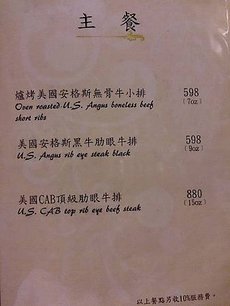 主 餐
爐烤美國安格斯無骨牛小排 598
Oven roasted U.S. Angus boneless beef (7oz)
short ribs
美國安格斯黑牛肋眼牛排 598
U.S. Angus rib eye steak black (9oz)
美國CAB頂級肋眼牛排 880
U.S. CAB top rib eye beef steak (15oz)
以上餐點另收10%服務費。